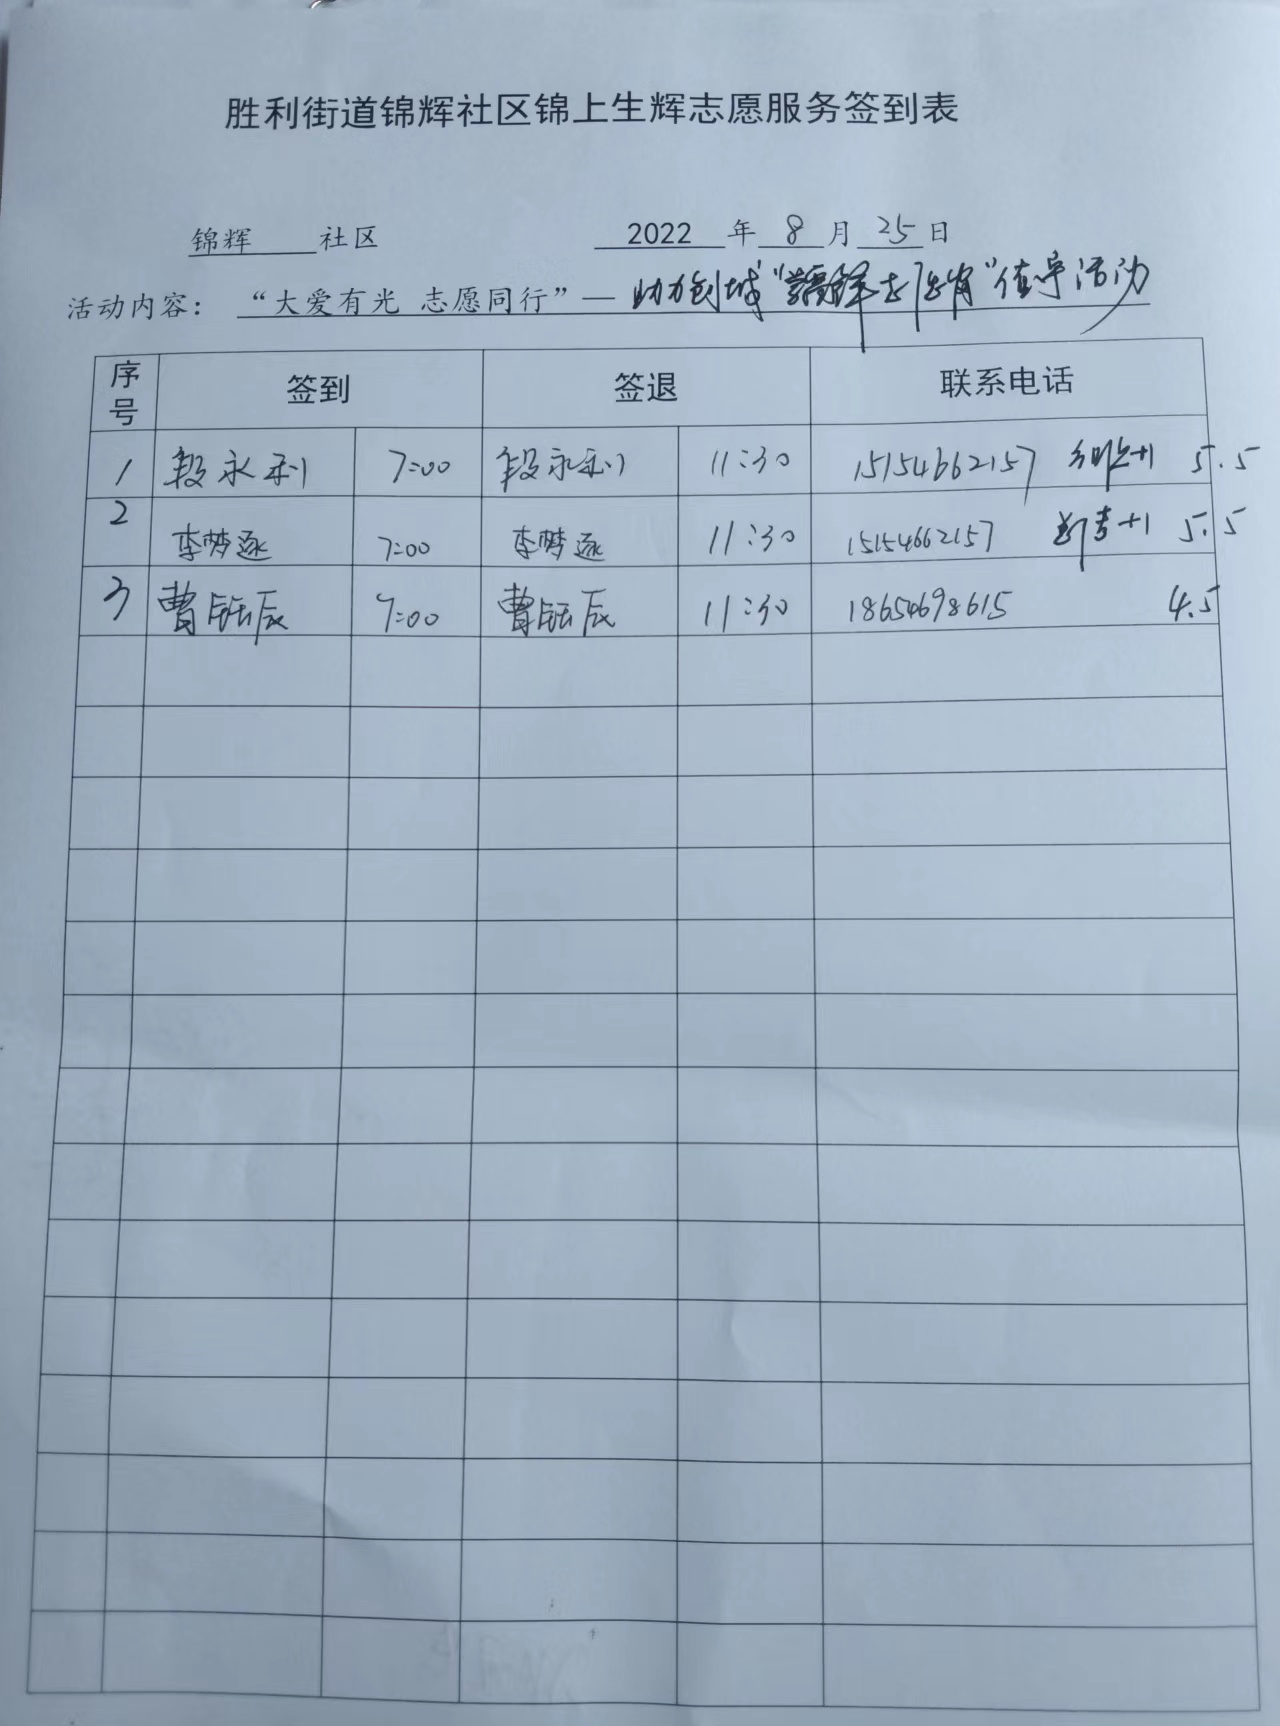 胜利街道锦辉社区锦上生辉志愿服务签到表
锦辉 社区 2022 年 8 月 25 日
活动内容： “大爱有光 志愿同行”— 助力创城“雷锋志愿岗”值守活动
序号 签到 签退 联系电话
1 段永利 7:00 段永利 11:30 15154662157 +1 5.5
2 李梦遥 7:00 李梦遥 11:30 15154662157 +1 5.5
3 曹钰辰 7:00 曹钰辰 11:30 18654698615 4.5